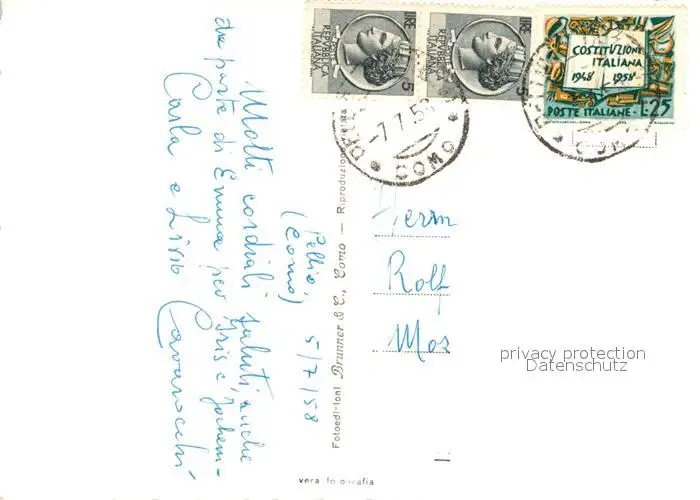 Pellio,
(Como) 5/7/58
Molti cordiali saluti, anche
da parte di Emma per Iris e Jochem-
Carla e Livio Cavarocchi
Fotoedi-ioni Brunner & C., Como — Riproduzione vietata
vera fotografia
LIRE 5
REPVBBLICA
ITALIANA
LIRE 5
REPVBBLICA
ITALIANA
COSTITUZIONE
ITALIANA
1948 1958
POSTE ITALIANE - L.25
-7.7.58
COMO
Herrn
Rolf
Mos
privacy protection
Datenschutz